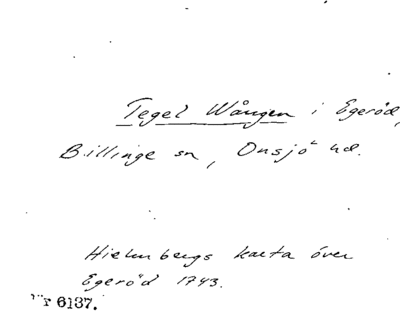 Tegel Wången i Egeröd,
Billinge sn, Onsjö hd.
Hielmbergs karta över
Egeröd 1743.
Nr 6137.